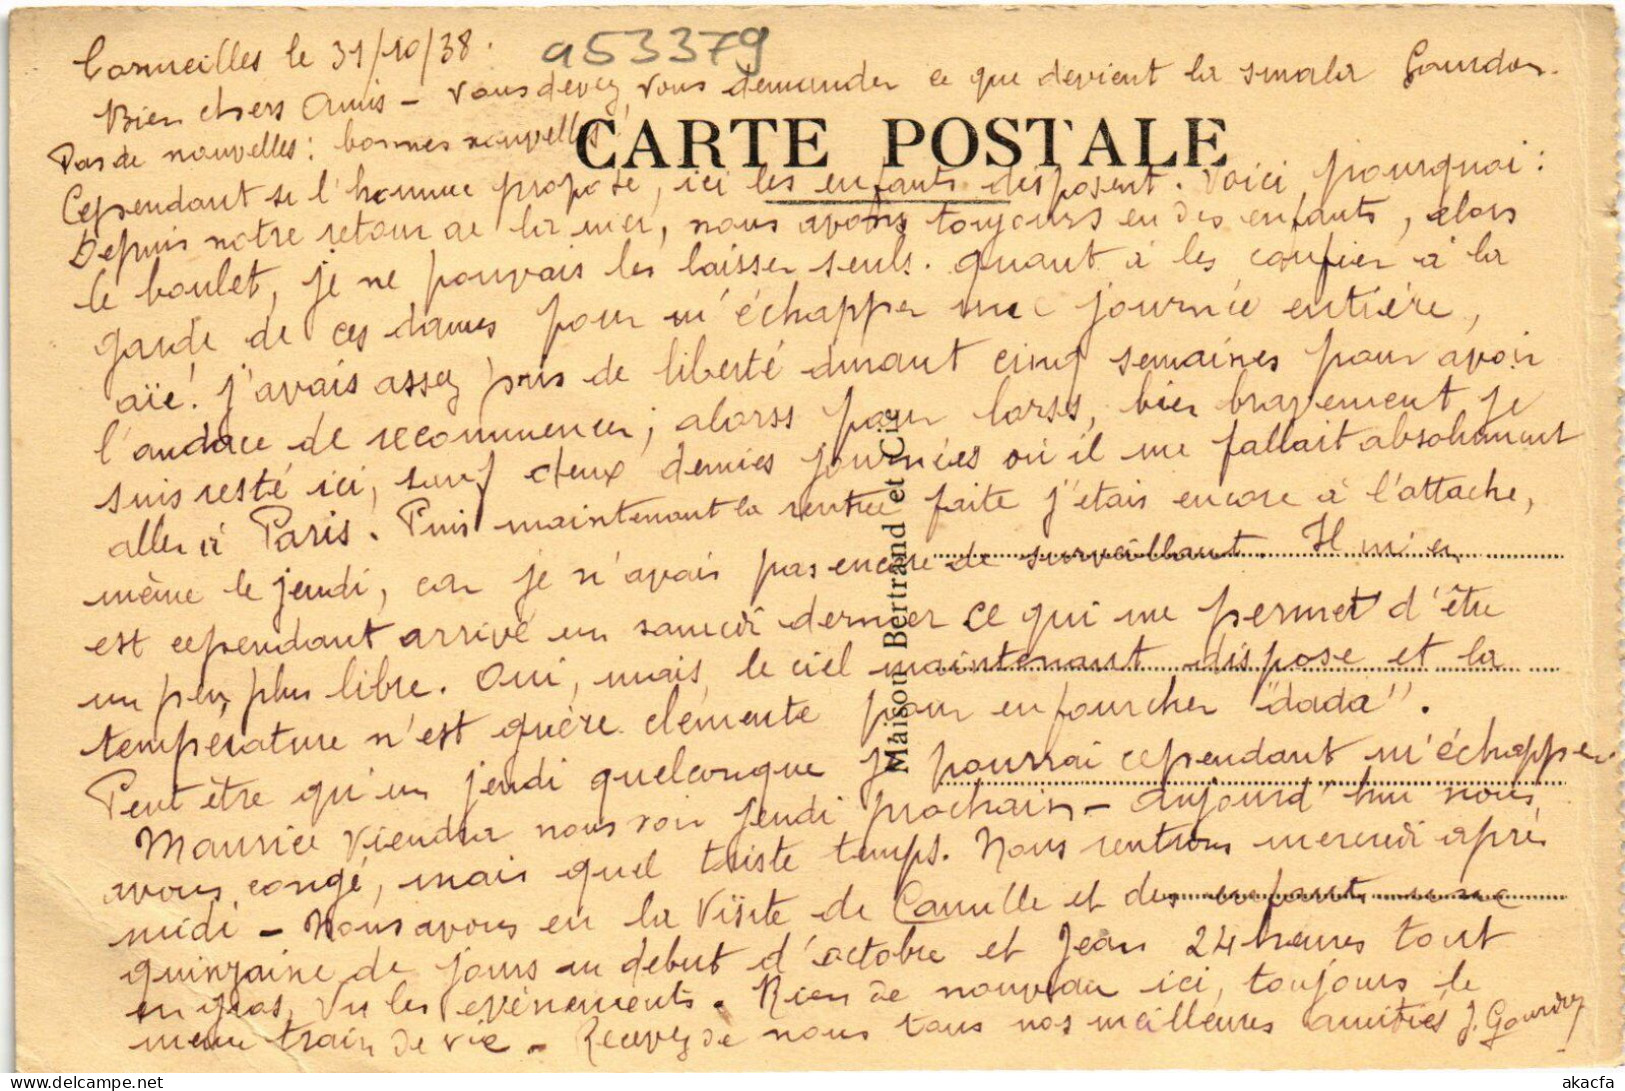 Cormeilles le 31/10/38.
a53379
Bien chers Amis – Vous devez vous demander ce que devient la smala Gourdon.
Pas de nouvelles : bonnes nouvelles !
CARTE POSTALE
Cependant si l'homme propose, ici les enfants disposent. Voici pourquoi :
Depuis notre retour de la mer, nous avons toujours eu des enfants, alors
le boulet, je ne pouvais les laisser seuls. Quant à les confier à la
garde de ces dames pour m'échapper une journée entière,
aïe ! j'avais assez pris de liberté durant cinq semaines pour avoir
l'audace de recommencer ; alorss pour lorss, bien bravement je
suis resté ici, sauf deux demies journées où il me fallait absolument
aller à Paris. Puis maintenant la rentrée faite j'étais encore à l'attache,
même le jeudi, car je n'avais pas encore de surveillant. Il m'en
est cependant arrivé un samedi dernier ce qui me permet d'être
un peu plus libre. Oui, mais le ciel maintenant dispose et la
température n'est guère clémente pour enfourcher "dada".
Peut être qu'un jeudi quelconque je pourrai cependant m'échapper
Maurice viendra nous voir jeudi prochain – Aujourd'hui nous
avons congé, mais quel triste temps. Nous rentrons mercredi après
midi – Nous avons eu la visite de Camille et des enfants une
quinzaine de jours au début d'octobre et Jean 24 heures tout
en gros, vu les évènements. Rien de nouveau ici, toujours le
même train de vie – Recevez de nous tous nos meilleures amitiés J. Gourdon
Maison Bertrand et Cie
akacfa
www.delcampe.net